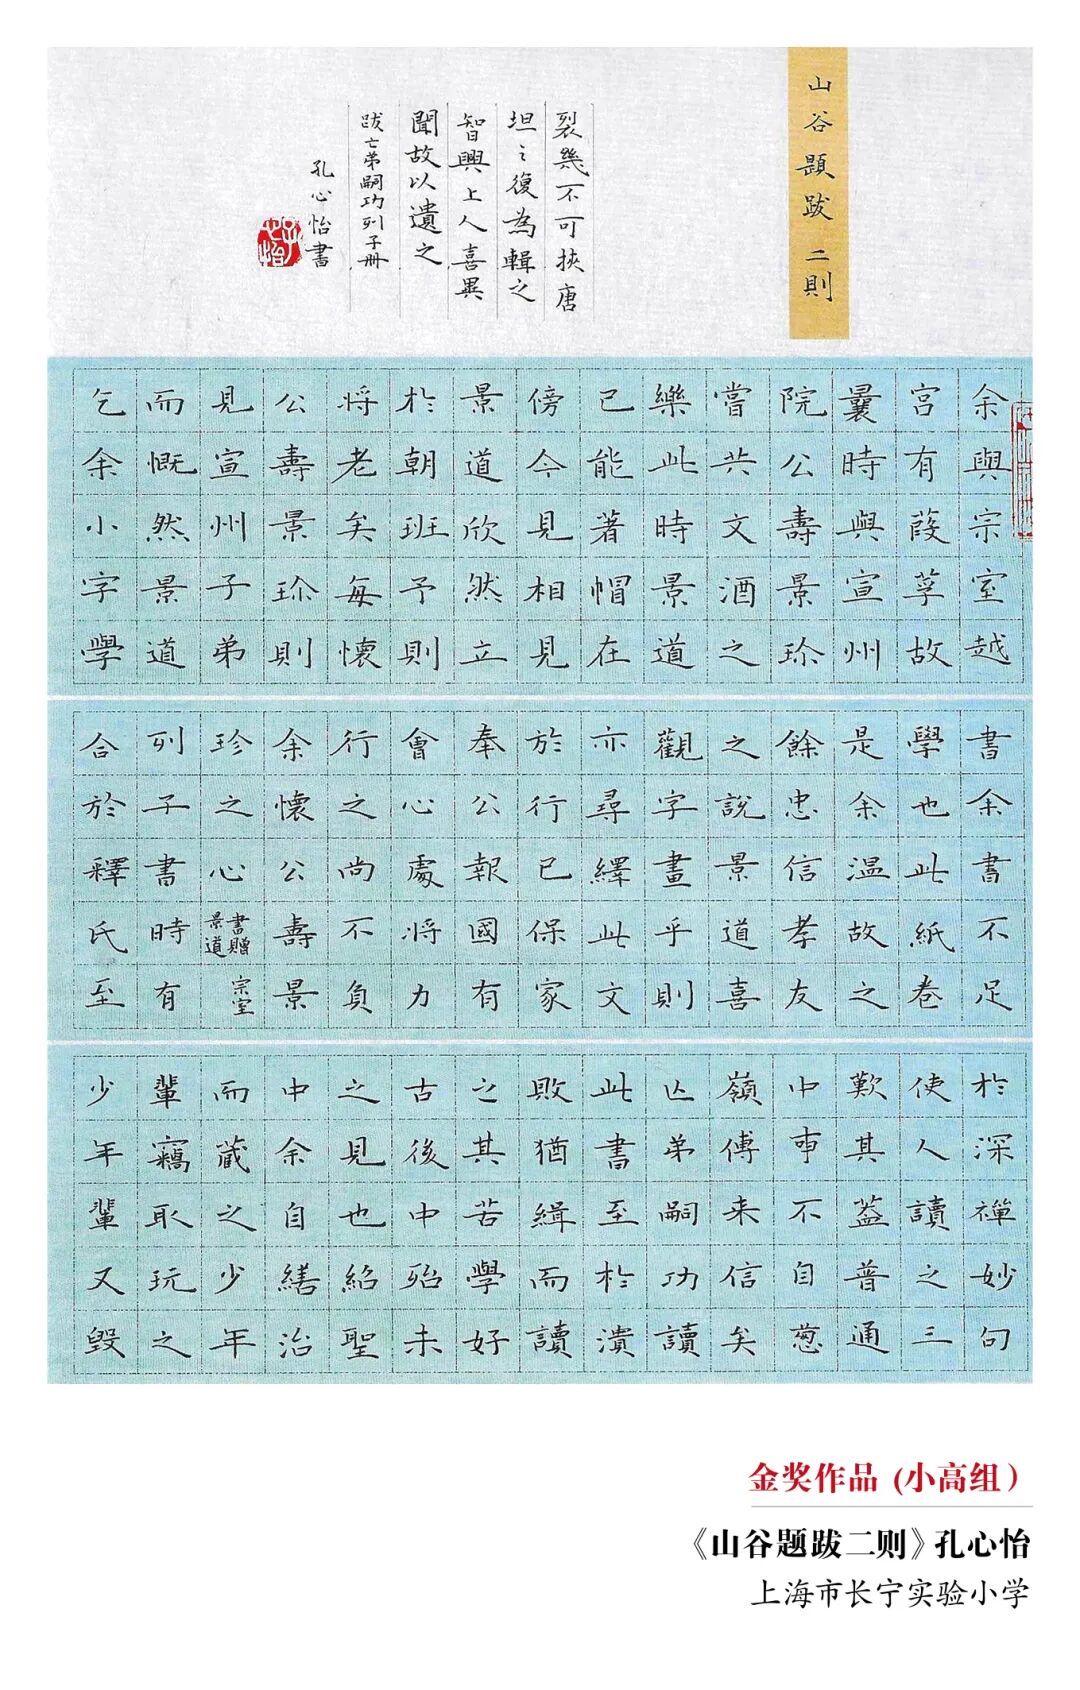 山谷題跋二則
余與宗室越
宫有葭莩故
曩時與宣州
院公壽景珎
嘗共文酒之
樂此時景道
已能著帽在
傍今見相見
景道欣然立
於朝班予則
將老矣每懷
公壽景珎則
見宣州子弟
而慨然景道
乞余小字學
書余書不足
學也此紙卷
是余温故之
餘忠信孝友
之說景道喜
觀字畫乎則
亦尋繹此文
於行已保家
奉公報國有
會心處將力
行之尚不負
余懷公壽景
珍之心書贈景道宗室
列子書時有
合於釋氏至
於深禪妙句
使人讀之三
歎其蓋普通
中事不自葱
嶺傅来信矣
亡弟嗣功讀
此書至於潰
敗猶緝而讀
之其苦學好
古後中殆未
之見也紿聖
中余自繕治
而藏之少年
輩竊取玩之
少年輩又毀
裂幾不可挾唐
坦之復為輯之
智興上人喜異
聞故以遺之
跋亡弟嗣功列子册
孔心怡書
金奖作品 (小高组）
《山谷题跋二则》孔心怡
上海市长宁实验小学